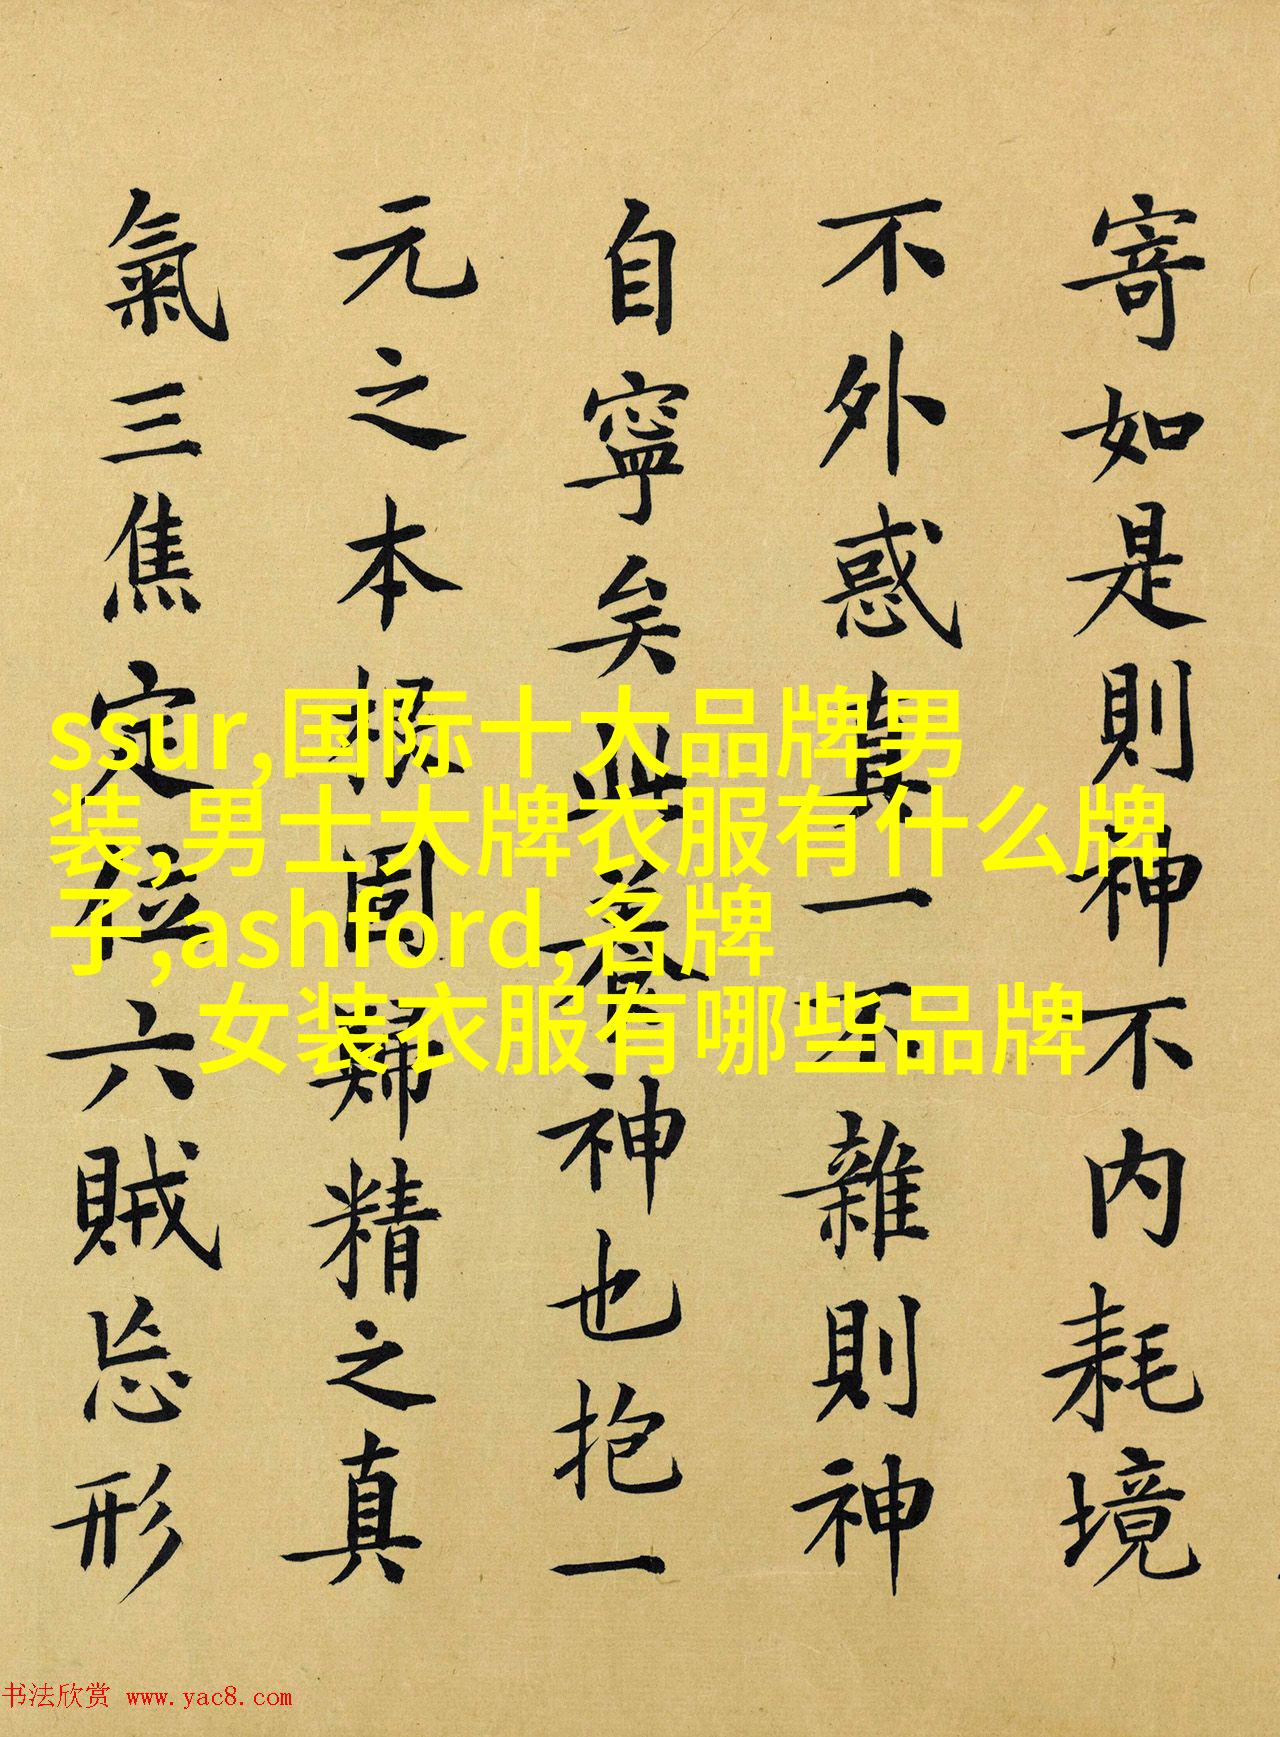 寄如是則神不内耗境
不外惑真一不雜則神
自寧矣此養神也抱一
元之本根固歸精之真
氣三焦定位六賊忘形
ssur,国际十大品牌男
装,男士大牌衣服有什么牌
子,ashford,名牌
女装衣服有哪些品牌
书法欣赏 www.yac8.com